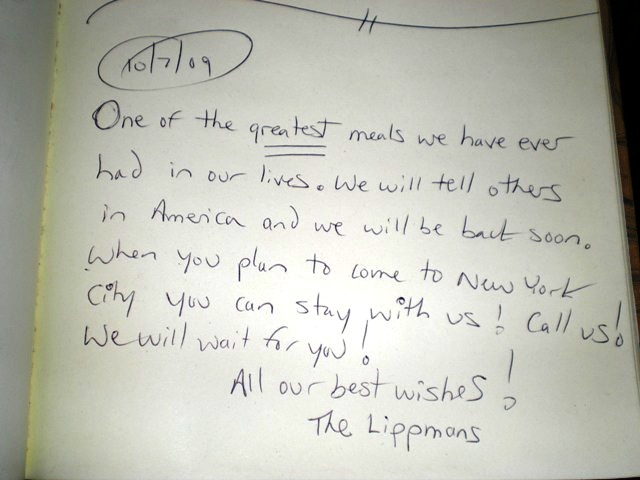 10/7/09
One of the greatest meals we have ever
had in our lives. We will tell others
in America and we will be back soon.
When you plan to come to New York
City you can stay with us! Call us!
We will wait for you!
All our best wishes!
The Lippmans